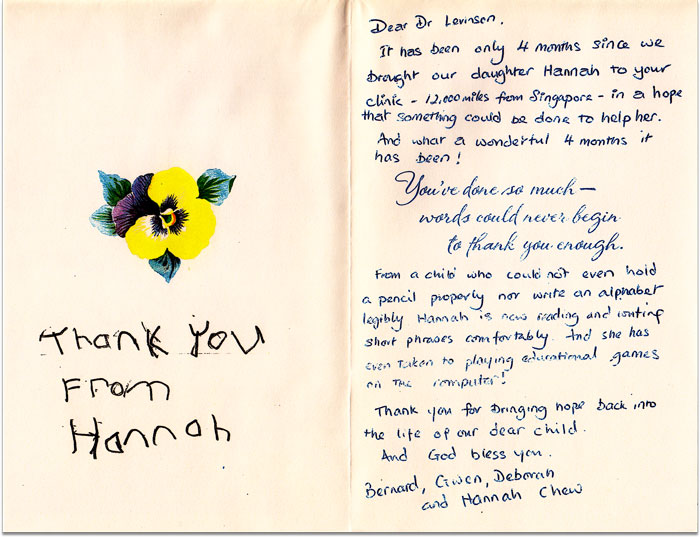 Thank You
From
Hannah
Dear Dr Levinson.
It has been only 4 months since we
brought our daughter Hannah to your
clinic - 12,000 miles from Singapore - in a hope
that something could be done to help her.
And what a wonderful 4 months it
has been!
You've done so much—
words could never begin
to thank you enough.
From a child who could not even hold
a pencil properly nor write an alphabet
legibly Hannah is now reading and writing
short phrases comfortably. And she has
even taken to playing educational games
on the computer!
Thank you for bringing hope back into
the life of our dear child.
And God bless you.
Bernard, Gwen, Deborah
and Hannah Chew